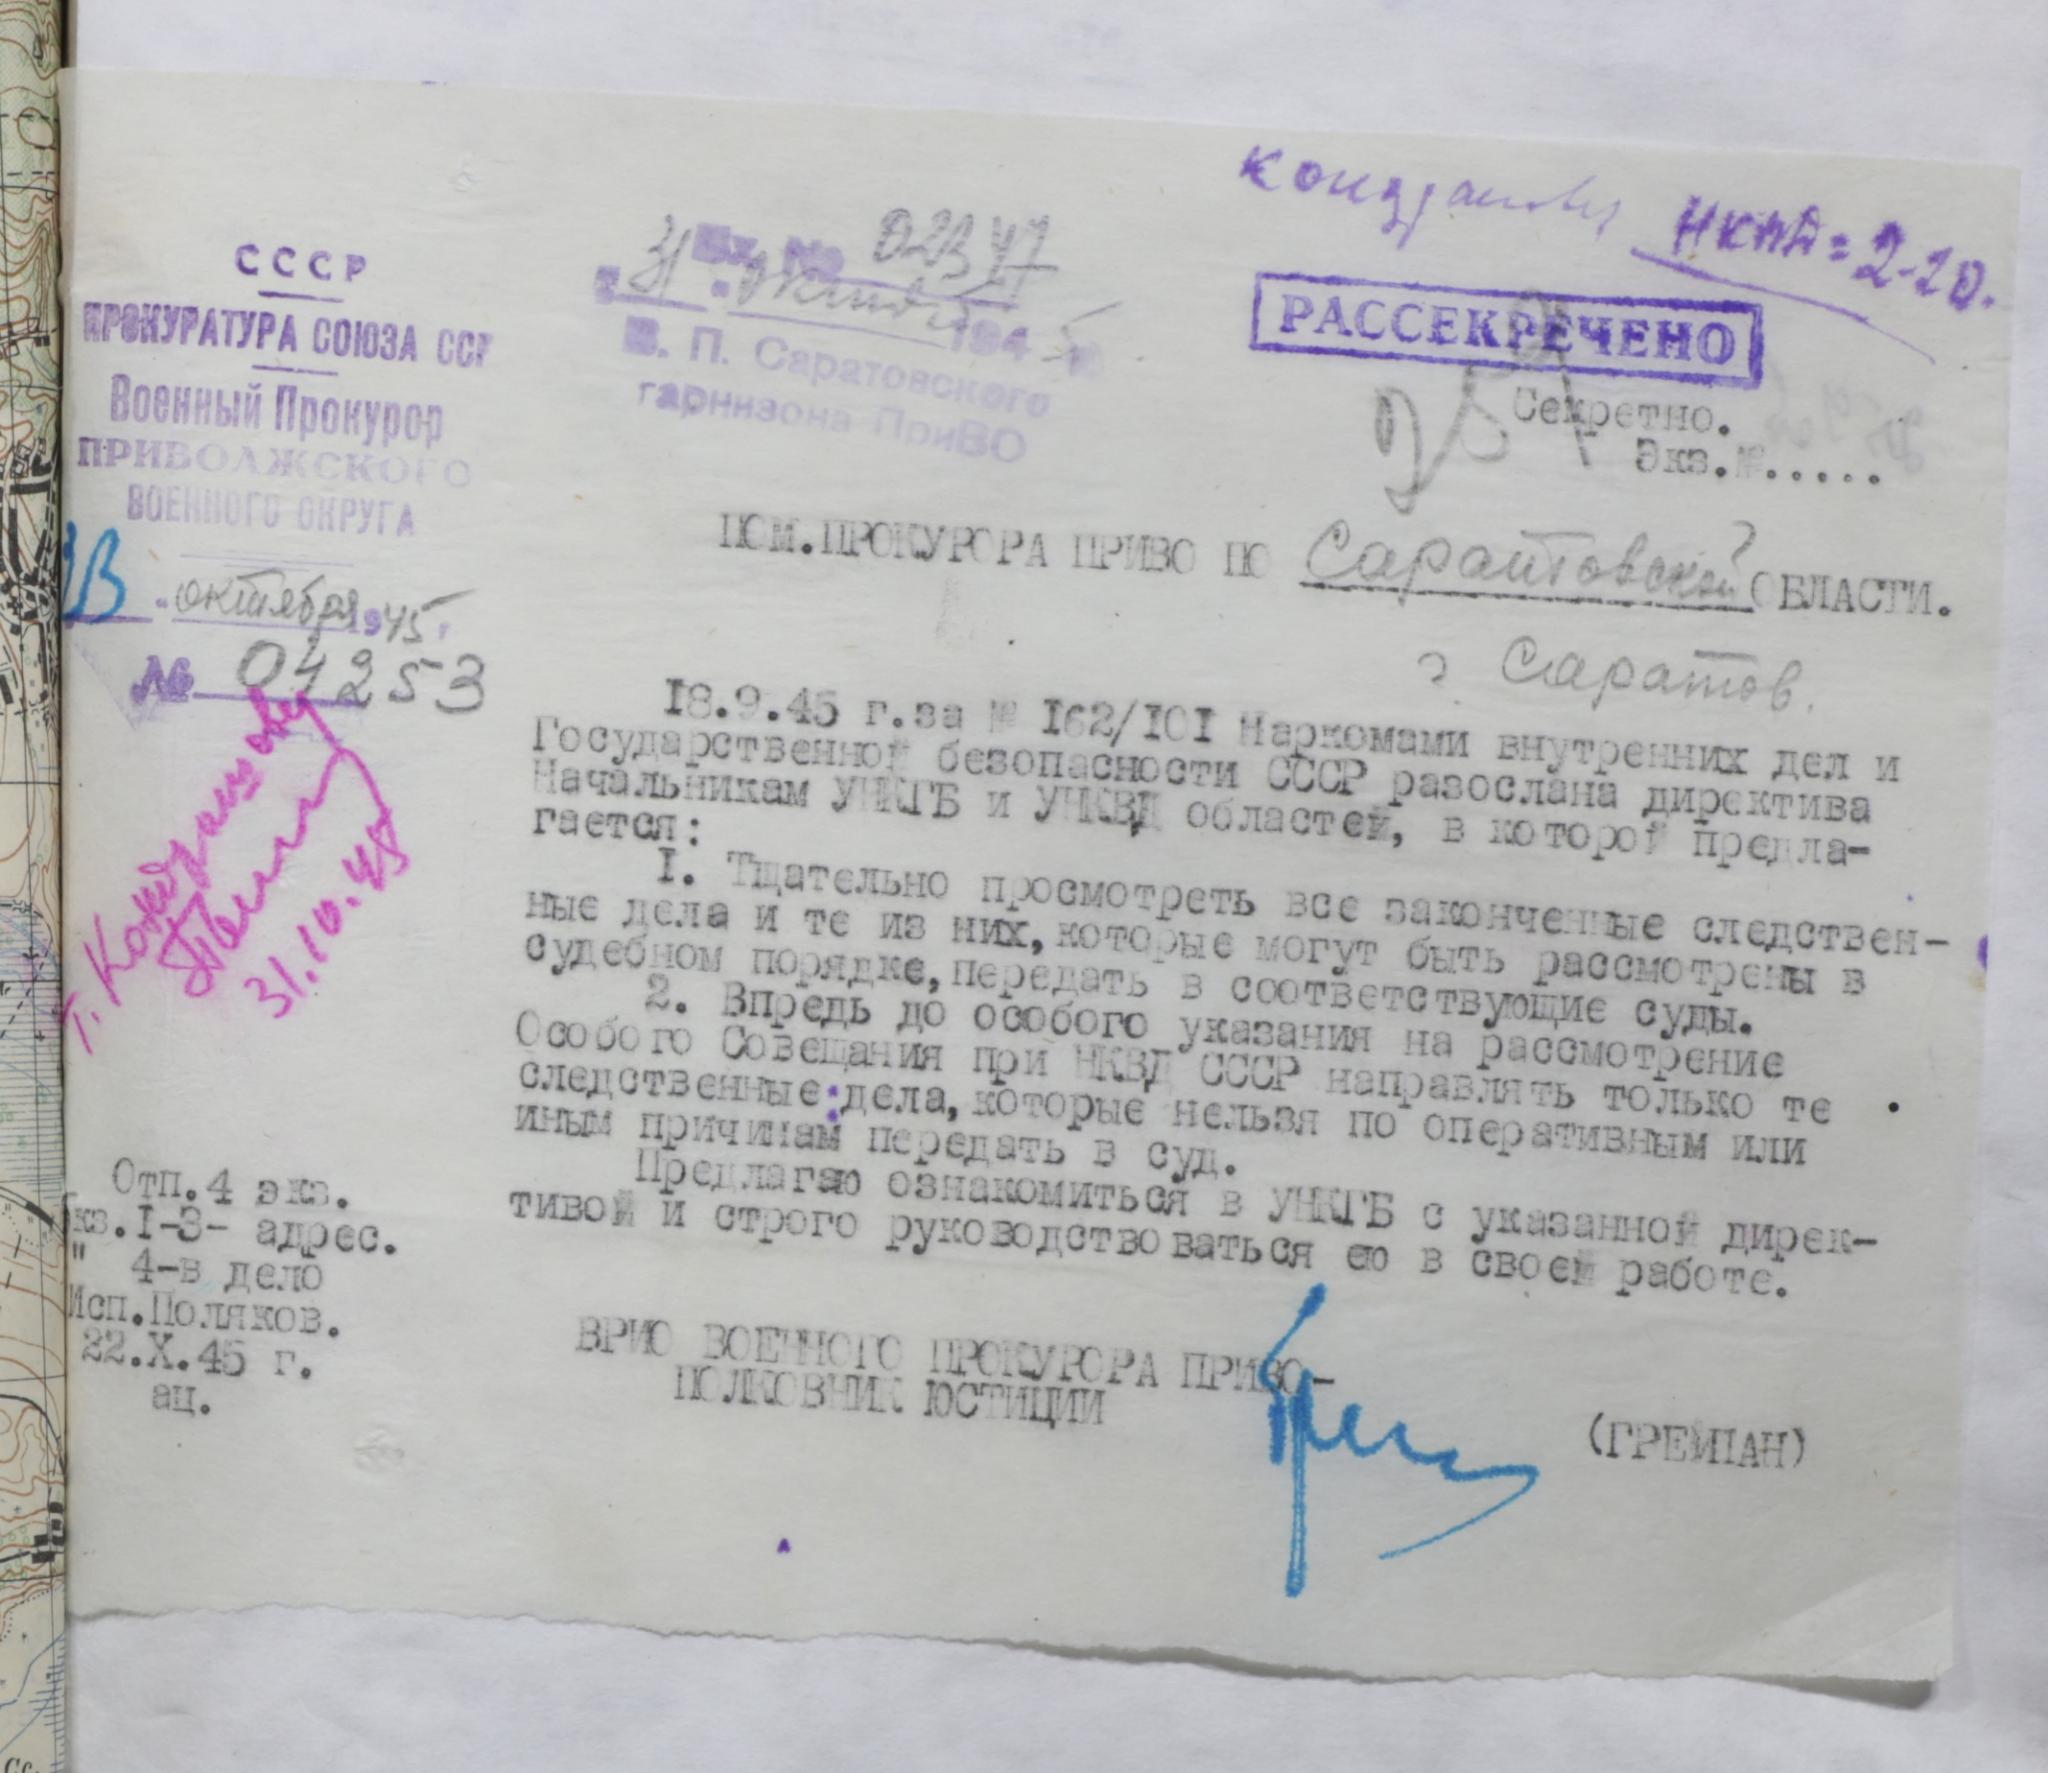 СССР
ПРОКУРАТУРА СОЮЗА ССР
Военный Прокурор
ПРИВОЛЖСКОГО
ВОЕННОГО ОКРУГА
октября 1945 г
№ 04253
т. Кондрашову
31.10.45
Вх. №
"31" октября 1945
В. П. Саратовского
гарнизона ПриВО
РАССЕКРЕЧЕНО
Секретно.
Экз.№.....
ПОМ.ПРОКУРОРА ПРИВО ПО Саратовской ОБЛАСТИ.
г Саратов.
I8.9.45 г.за № I62/I0I Наркомами внутренних дел и
Государственной безопасности СССР разослана директива
Начальникам УНКГБ и УНКВД областей, в которой предла-
гается:
I. Тщательно просмотреть все законченные следствен-
ные дела и те из них, которые могут быть рассмотрены в
судебном порядке, передать в соответствующие суды.
2. Впредь до особого указания на рассмотрение
Особого Совещания при НКВД СССР направлять только те
следственные дела, которые нельзя по оперативным или
иным причинам передать в суд.
Предлагаю ознакомиться в УНКГБ с указанной дирек-
тивой и строго руководствоваться ею в своей работе.
ВРИО ВОЕННОГО ПРОКУРОРА ПРИВО-
ПОЛКОВНИК ЮСТИЦИИ
Отп.4 экз.
кз.I-3- адрес.
" 4-в дело
Исп.Поляков.
22.X.45 г.
ац.